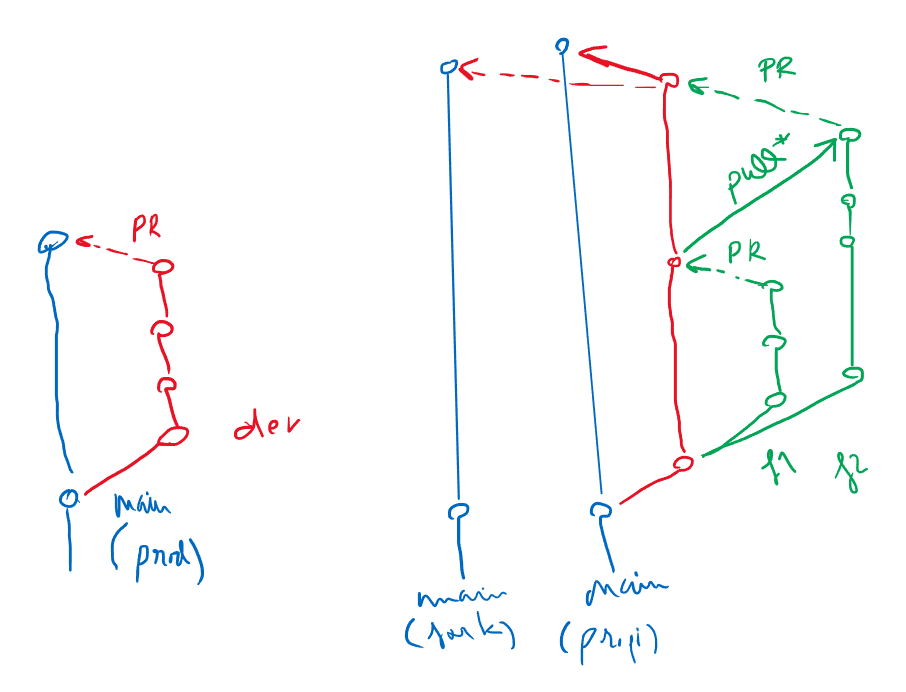 PR
dev
main
(prod)
PR
pull*
PR
f1 f2
main
(fork)
main